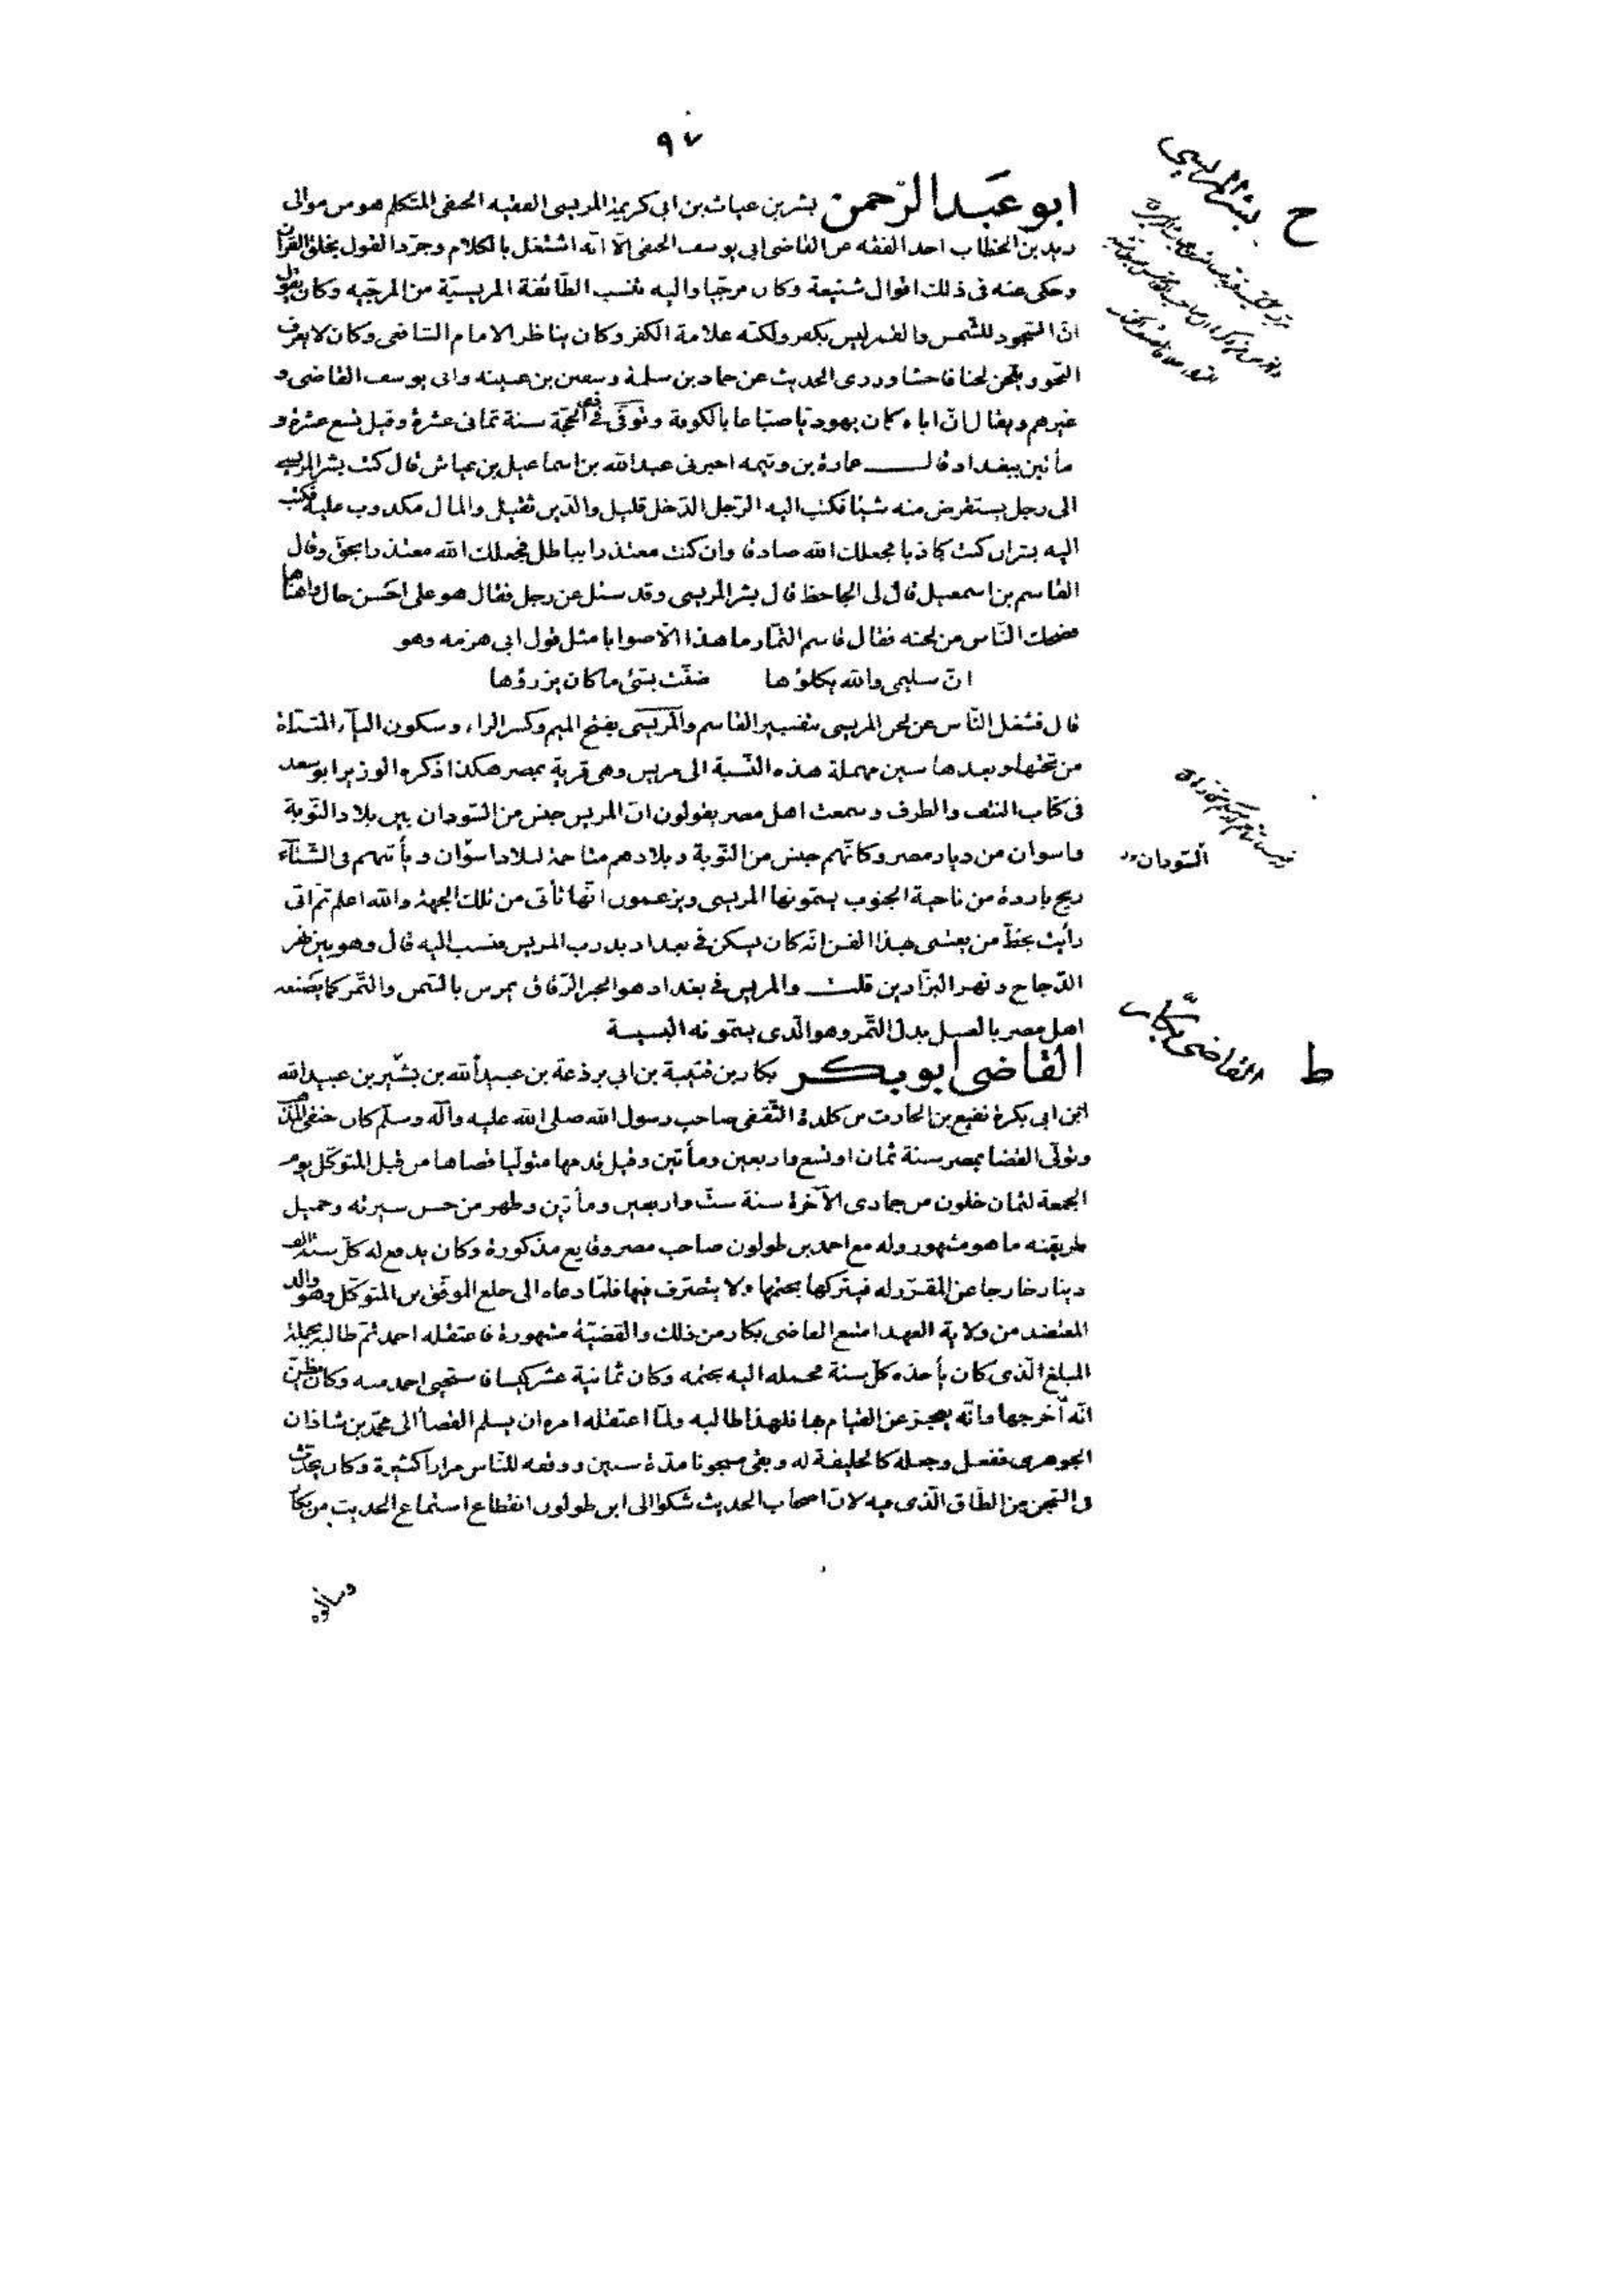 ٩٧
ح
بشر المريسي
ابو عبد الرّحمن بشر بن غياث بن ابي كريمة المريسى الفقيه الحنفى المتكلم هو من موالى
زيد بن الخطاب اخذ الفقه عن القاضى ابى يوسف الحنفى الّا انّه اشتغل بالكلام وجرّد القول بخلق القرآن
وحكى عنه فى ذلك اقوال شنيعة وكان مرجئيا واليه تنسب الطّائفة المريسيّة من المرجئه وكان يقول
انّ السّجود للشّمس والقمر ليس بكفر ولكنّه علامة الكفر وكان يناظر الامام الشافعى وكان لا يعرف
النّحو ويلحن لحنا فاحشا وروى الحديث عن حماد بن سلمة وسفين بن عيينه وابى يوسف القاضى و
غيرهم ويقال انّ اباه كان يهوديّا صبّاغا بالكوفة وتوفّى فى ذى الحجّة سنة ثمانى عشرة وقيل تسع عشرة و
مأتين ببغداد قال عمارة بن وثيمه اخبرنى عبد الله بن اسماعيل بن عياش قال كتب بشر المريسى
الى رجل يستقرض منه شيئا فكتب اليه الرّجل الدّخل قليل والدّين ثقيل والمال مكذوب عليه فكتب
اليه بشر ان كنت كاذبا فجعلك الله صادقا وان كنت معتذرا بباطل فجعلك الله معتذرا بحق وقال
القاسم بن اسمعيل قال لى الجاحظ قال بشر المريسى وقد سئل عن رجل فقال هو على احسن حال واهنأها
فضحك النّاس من لحنه فقال قاسم التمّار ما هذا الّا صوابا مثل قول ابى هرمه وهو
انّ سليمى والله يكلؤها ضنّت بشئ ما كان يزرؤها
قال فشغل النّاس عن لحن المريسى بتفسير القاسم والمريسى بفتح الميم وكسر الراء وسكون الياء المثنّاة
من تحتها وبعدها سين مهملة هذه النّسبة الى مريس وهى قرية بمصر هكذا ذكره الوزير ابو سعد
فى كتاب النتف والطرف وسمعت اهل مصر يقولون انّ المريس جنس من السّودان بين بلاد النّوبة
السّودان
واسوان من ديار مصر وكانّهم جنس من النّوبة وبلادهم متاخمة لبلاد اسوان ويأتيهم فى الشّتاء
ريح باردة من ناحية الجنوب يسمّونها المريسى ويزعمون انّها تأتى من تلك الجهة والله اعلم ثم انّى
رأيت بخطّ من يعتنى بهذا الفن انّه كان يسكن فى بغداد بدرب المريس فنسب اليه قال وهو بين نهر
الدّجاج ونهر البزّازين قلت والمريس فى بغداد هو الخبز الرّقاق يمرس بالسّمن والتّمر كما يصنعه
اهل مصر بالعسل بدل التّمر وهو الّذى يسمّونه البسيسة
ط
القاضى بكّار
القاضى ابو بكر بكار بن قتيبة بن ابى برذعة بن عبيد الله بن بشير بن عبيد الله
ابن ابى بكرة نفيع بن الحارث بن كلدة الثّقفى صاحب رسول الله صلى الله عليه وآله وسلّم كان حنفى المذهب
وتولّى القضا بمصر سنة ثمان او تسع واربعين ومأتين وقيل قدمها متولّيا قضاها من قبل المتوكّل يوم
الجمعة لثمان خلون من جمادى الآخرة سنة ستّ واربعين ومأتين وظهر من حسن سيرته وجميل
طريقته ما هو مشهور وله مع احمد بن طولون صاحب مصر وقايع مذكورة وكان يدفع له كلّ سنة الف
دينار خارجا عن المقرّر له فيتركها بختمها ولا يتصرّف فيها فلمّا دعاه الى خلع الموفّق بن المتوكّل وهو والد
المعتضد من ولاية العهد امتنع القاضى بكار من ذلك والقضيّة مشهورة فاعتقله احمد ثمّ طالبه بجملة
المبلغ الّذى كان يأخذه كلّ سنة فحمله اليه بختمه وكان ثمانية عشر كيسا فاستحيى احمد منه وكان يظنّ
انّه اخرجها وانّه يعجز عن القيام بها فلهذا طالبه ولمّا اعتقله امره ان يسلم القضاء الى محمّد بن شاذان
الجوهرى ففعل وجعله كالخليفة له وبقى مسجونا مدّة سنين ووقفه للنّاس مرارا كثيرة وكان يحدّث
فى السّجن من الطّاق الّذى فيه لانّ اصحاب الحديث شكوا الى ابن طولون انقطاع استماع الحديث من بكّار
وسألوه